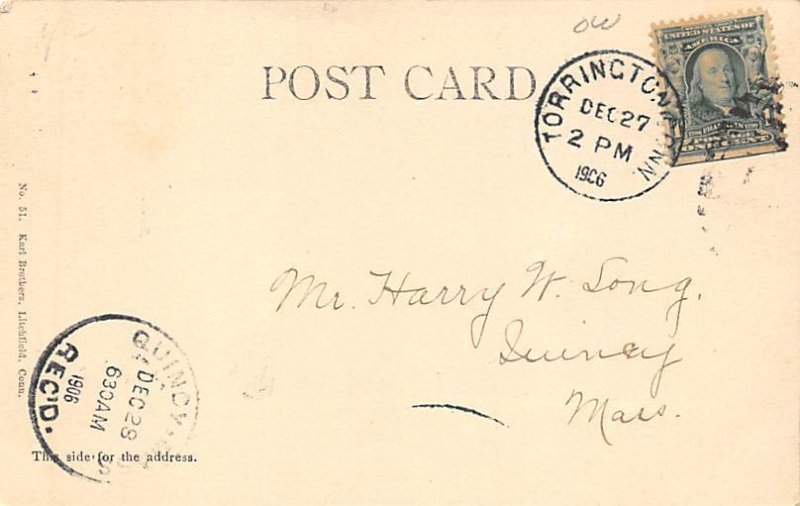 ow
UNITED STATES OF
AMERICA
POST CARD
TORRINGTON, CONN
DEC 27
2 PM
1906
Mr. Harry W. Long.
Quincy
Mass.
No. 51. Karl Brothers, Litchfield, Conn.
QUINCY,
DEC 28
630AM
1906
REC'D.
This side for the address.